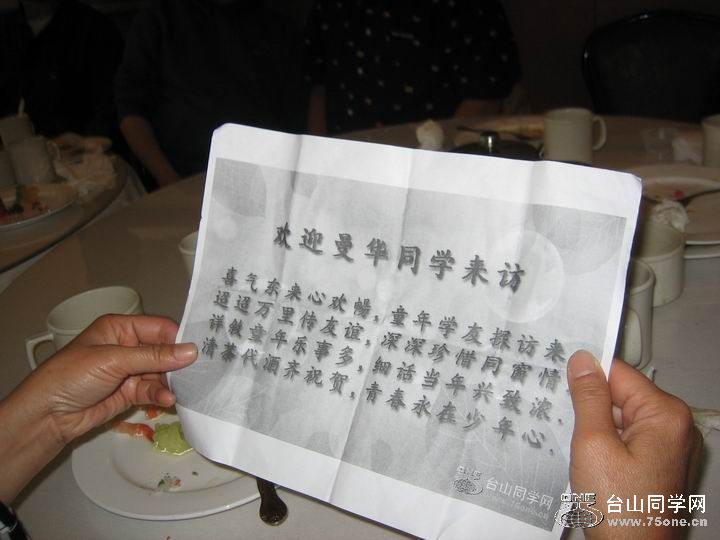 欢迎曼华同学来访
喜气东来心欢畅，童年学友探访来，
迢迢万里传友谊，深深珍惜同窗情，
详叙童年乐事多，细话当年兴致浓，
清茶代酒齐祝贺，青春永在少年心，
台山同学网
台山同学网
www.75one.cn